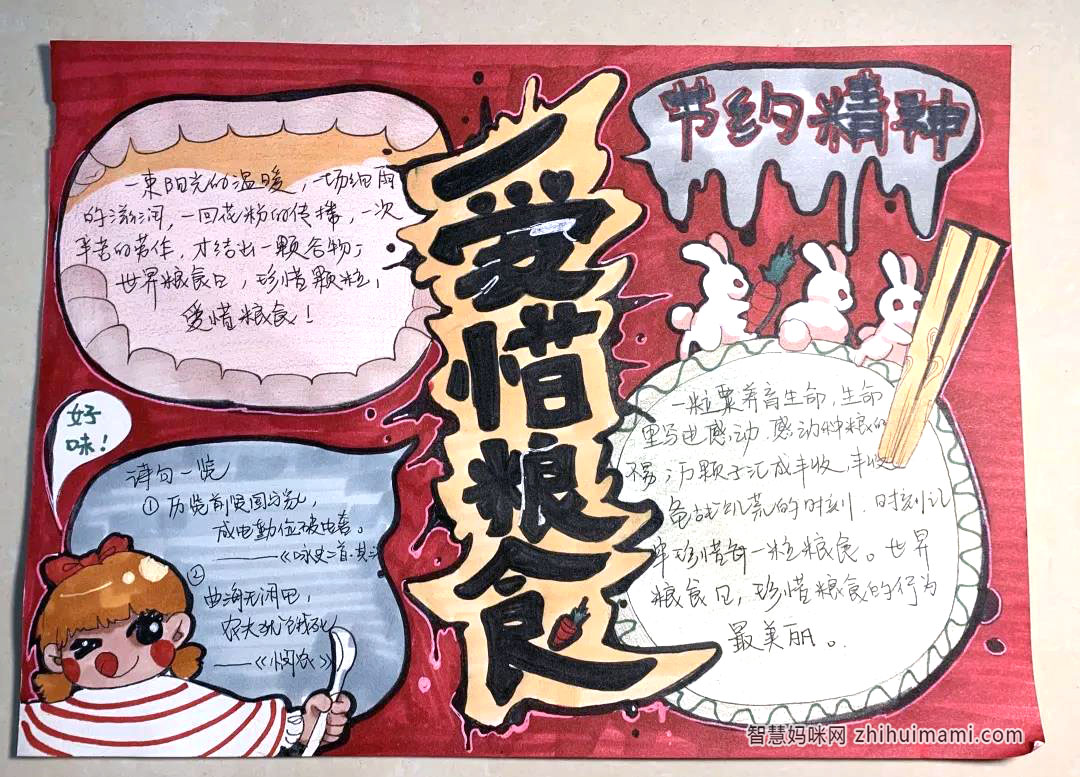 爱惜粮食
节约精神
一束阳光的温暖，一场细雨
的滋润，一回花粉的传播，一次
辛苦的劳作，才结出一颗谷物；
世界粮食日，珍惜颗粒，
爱惜粮食！
好
味！
诗句一览
① 历览前贤国与家，
成由勤俭破由奢。
——《咏史二首·其二
②
四海无闲田，
农夫犹饿死
——《悯农》
一粒粟养育生命，生命
里写进感动，感动种粮的
不易；万颗子汇成丰收，丰收
备战饥荒的时刻，时刻让
珍惜每一粒粮食。世界
粮食日，珍惜粮食的行为
最美丽。
智慧妈咪网 zhihuimami.com